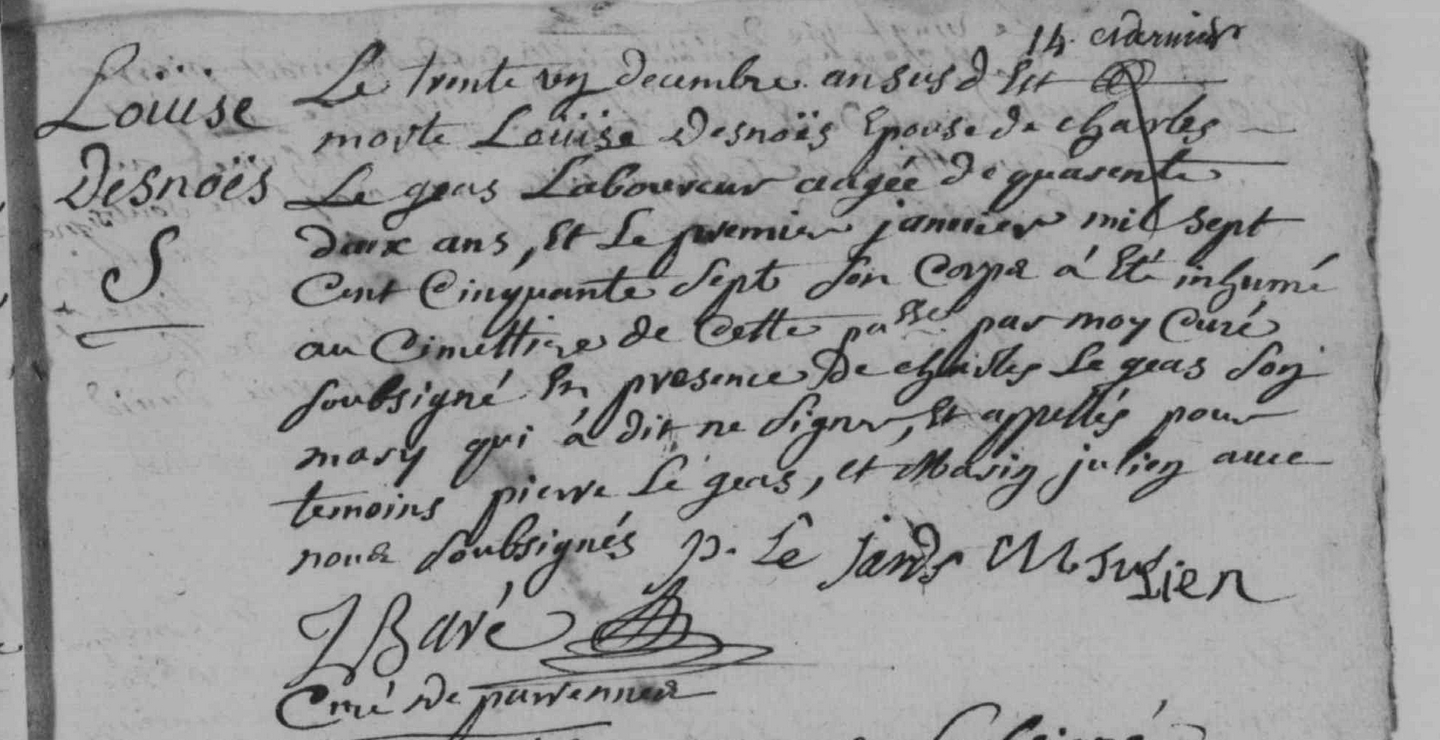 14. et dernier
Louise
Desnoës
S
Le trente un decembre an susd Est
morte Louïse Desnoës Epouse de charles
Le geas Laboureur aagée de quarente
deux ans, Et Le premier janvier mil sept
Cent Cinquante Sept Son Corps á Eté inhumé
au Cimettiere de Cette passe par moy Curé
soubsigné En presence De charles Le geas Son
mary qui á dit ne Signer, Et appellés pour
temoins pierre Le geas, et Marin julien avec
nous Soubsignés p. Le jards M Julien
J Baré
Curé de parrennes